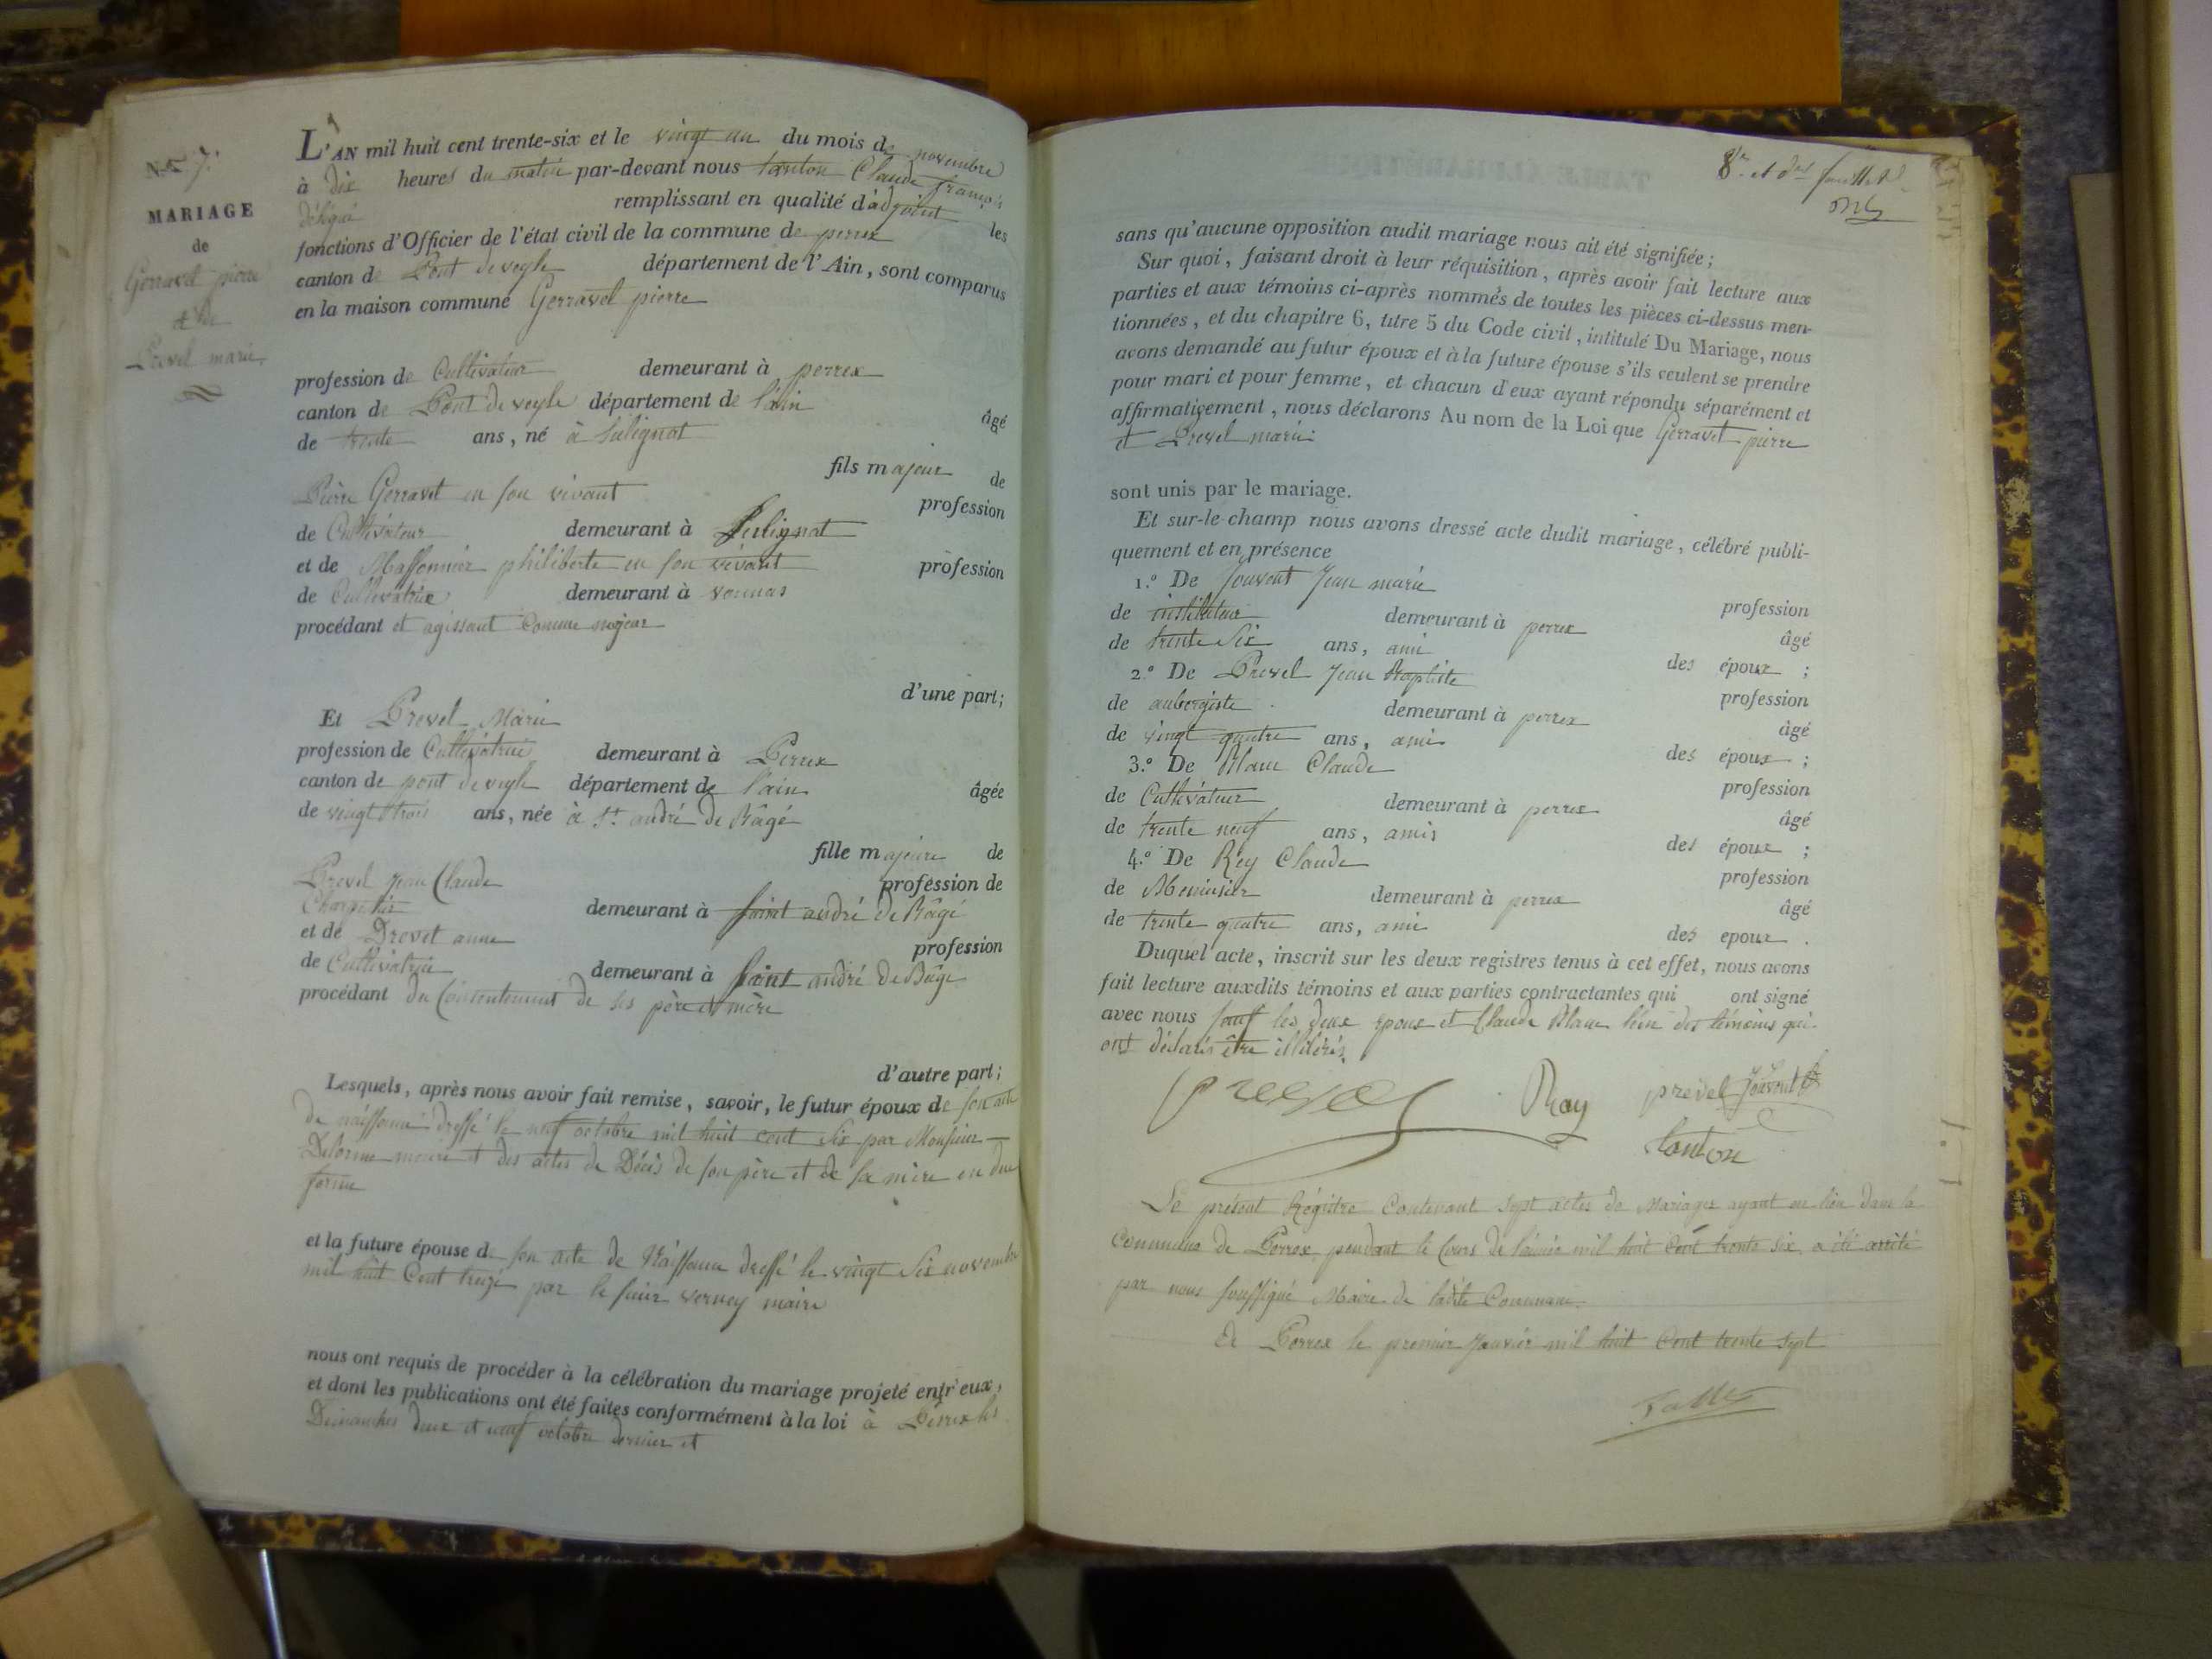 N.º 7.
MARIAGE
de
Gerravet pierre
et de
Prevel marie
L'AN mil huit cent trente-six et le vingt un du mois de novembre
à dix heures du matin par-devant nous tanton Claude françois
délégué remplissant en qualité d'adjoint les
fonctions d'Officier de l'état civil de la commune de perrex
canton de Pont de veyle département de l'Ain, sont comparus
en la maison commune Gerravet pierre
profession de Cultivateur demeurant à perrex
canton de Pont de veyle département de l'ain âgé
de trente ans, né à Sulignat
fils majeur de
Pierre Gerravet en son vivant profession
de Cultivateur demeurant à Sulignat
et de Massonnier philiberte en son vivant profession
de Cultivatrice demeurant à vonnas
procédant et agissant Comme majeur
d'une part;
Et Prevel Marie
profession de Cultivatrice demeurant à Perrex
canton de pont de veyle département de l'ain âgée
de vingt trois ans, née à St. andré de Bâgé
fille majeure de
Prevel Jean Claude profession de
Charpentier demeurant à saint andré de Bâgé
et de Drevet anne profession
de Cultivatrice demeurant à saint andré de Bâgé
procédant du Consentement de ses père et mère
d'autre part;
Lesquels, après nous avoir fait remise, savoir, le futur époux de son acte
de naissance dressé le neuf octobre mil huit cent six par Monsieur
Delorme maire et des actes de Décès de son père et de sa mère en due
forme
et la future épouse de son acte de Naissance dressé le vingt six novembre
mil huit Cent treize par le sieur verney maire
nous ont requis de procéder à la célébration du mariage projeté entr'eux,
et dont les publications ont été faites conformément à la loi à Perrex les
Dimanches deux et neuf octobre dernier et
8e. et der feuillet
sans qu'aucune opposition audit mariage nous ait été signifiée;
Sur quoi, faisant droit à leur réquisition, après avoir fait lecture aux
parties et aux témoins ci-après nommés de toutes les pièces ci-dessus men-
tionnées, et du chapitre 6, titre 5 du Code civil, intitulé Du Mariage, nous
avons demandé au futur époux et à la future épouse s'ils veulent se prendre
pour mari et pour femme, et chacun d'eux ayant répondu séparément et
affirmativement, nous déclarons Au nom de la Loi que Gerravet pierre
et Prevel marie
sont unis par le mariage.
Et sur-le-champ nous avons dressé acte dudit mariage, célébré publi-
quement et en présence
1.º De Jouvent Jean marie profession
de instituteur demeurant à perrex âgé
de trente six ans, ami des époux ;
2.º De Prevel Jean Baptiste profession
de aubergiste demeurant à perrex âgé
de vingt quatre ans, ami des époux ;
3.º De Blanc Claude profession
de Cultivateur demeurant à perrex âgé
de trente neuf ans, amis des époux ;
4.º De Rey Claude profession
de Menuisier demeurant à perrex âgé
de trente quatre ans, ami des epoux .
Duquel acte, inscrit sur les deux registres tenus à cet effet, nous avons
fait lecture auxdits témoins et aux parties contractantes qui ont signé
avec nous sauf les deux époux et Claude Blanc l'un des témoins qui
ont déclarés être illitérés.
prevel Ray prevel Jouvent
tanton
Le présent Régistre Contenant sept actes de Mariages ayant eu lieu dans la
Commune de Perrex pendant le Cours de l'année mil huit Cent trente six, a été arrêté
par nous soussigné Maire de ladite Commune.
A Perrex le premier Janvier mil huit Cent trente sept